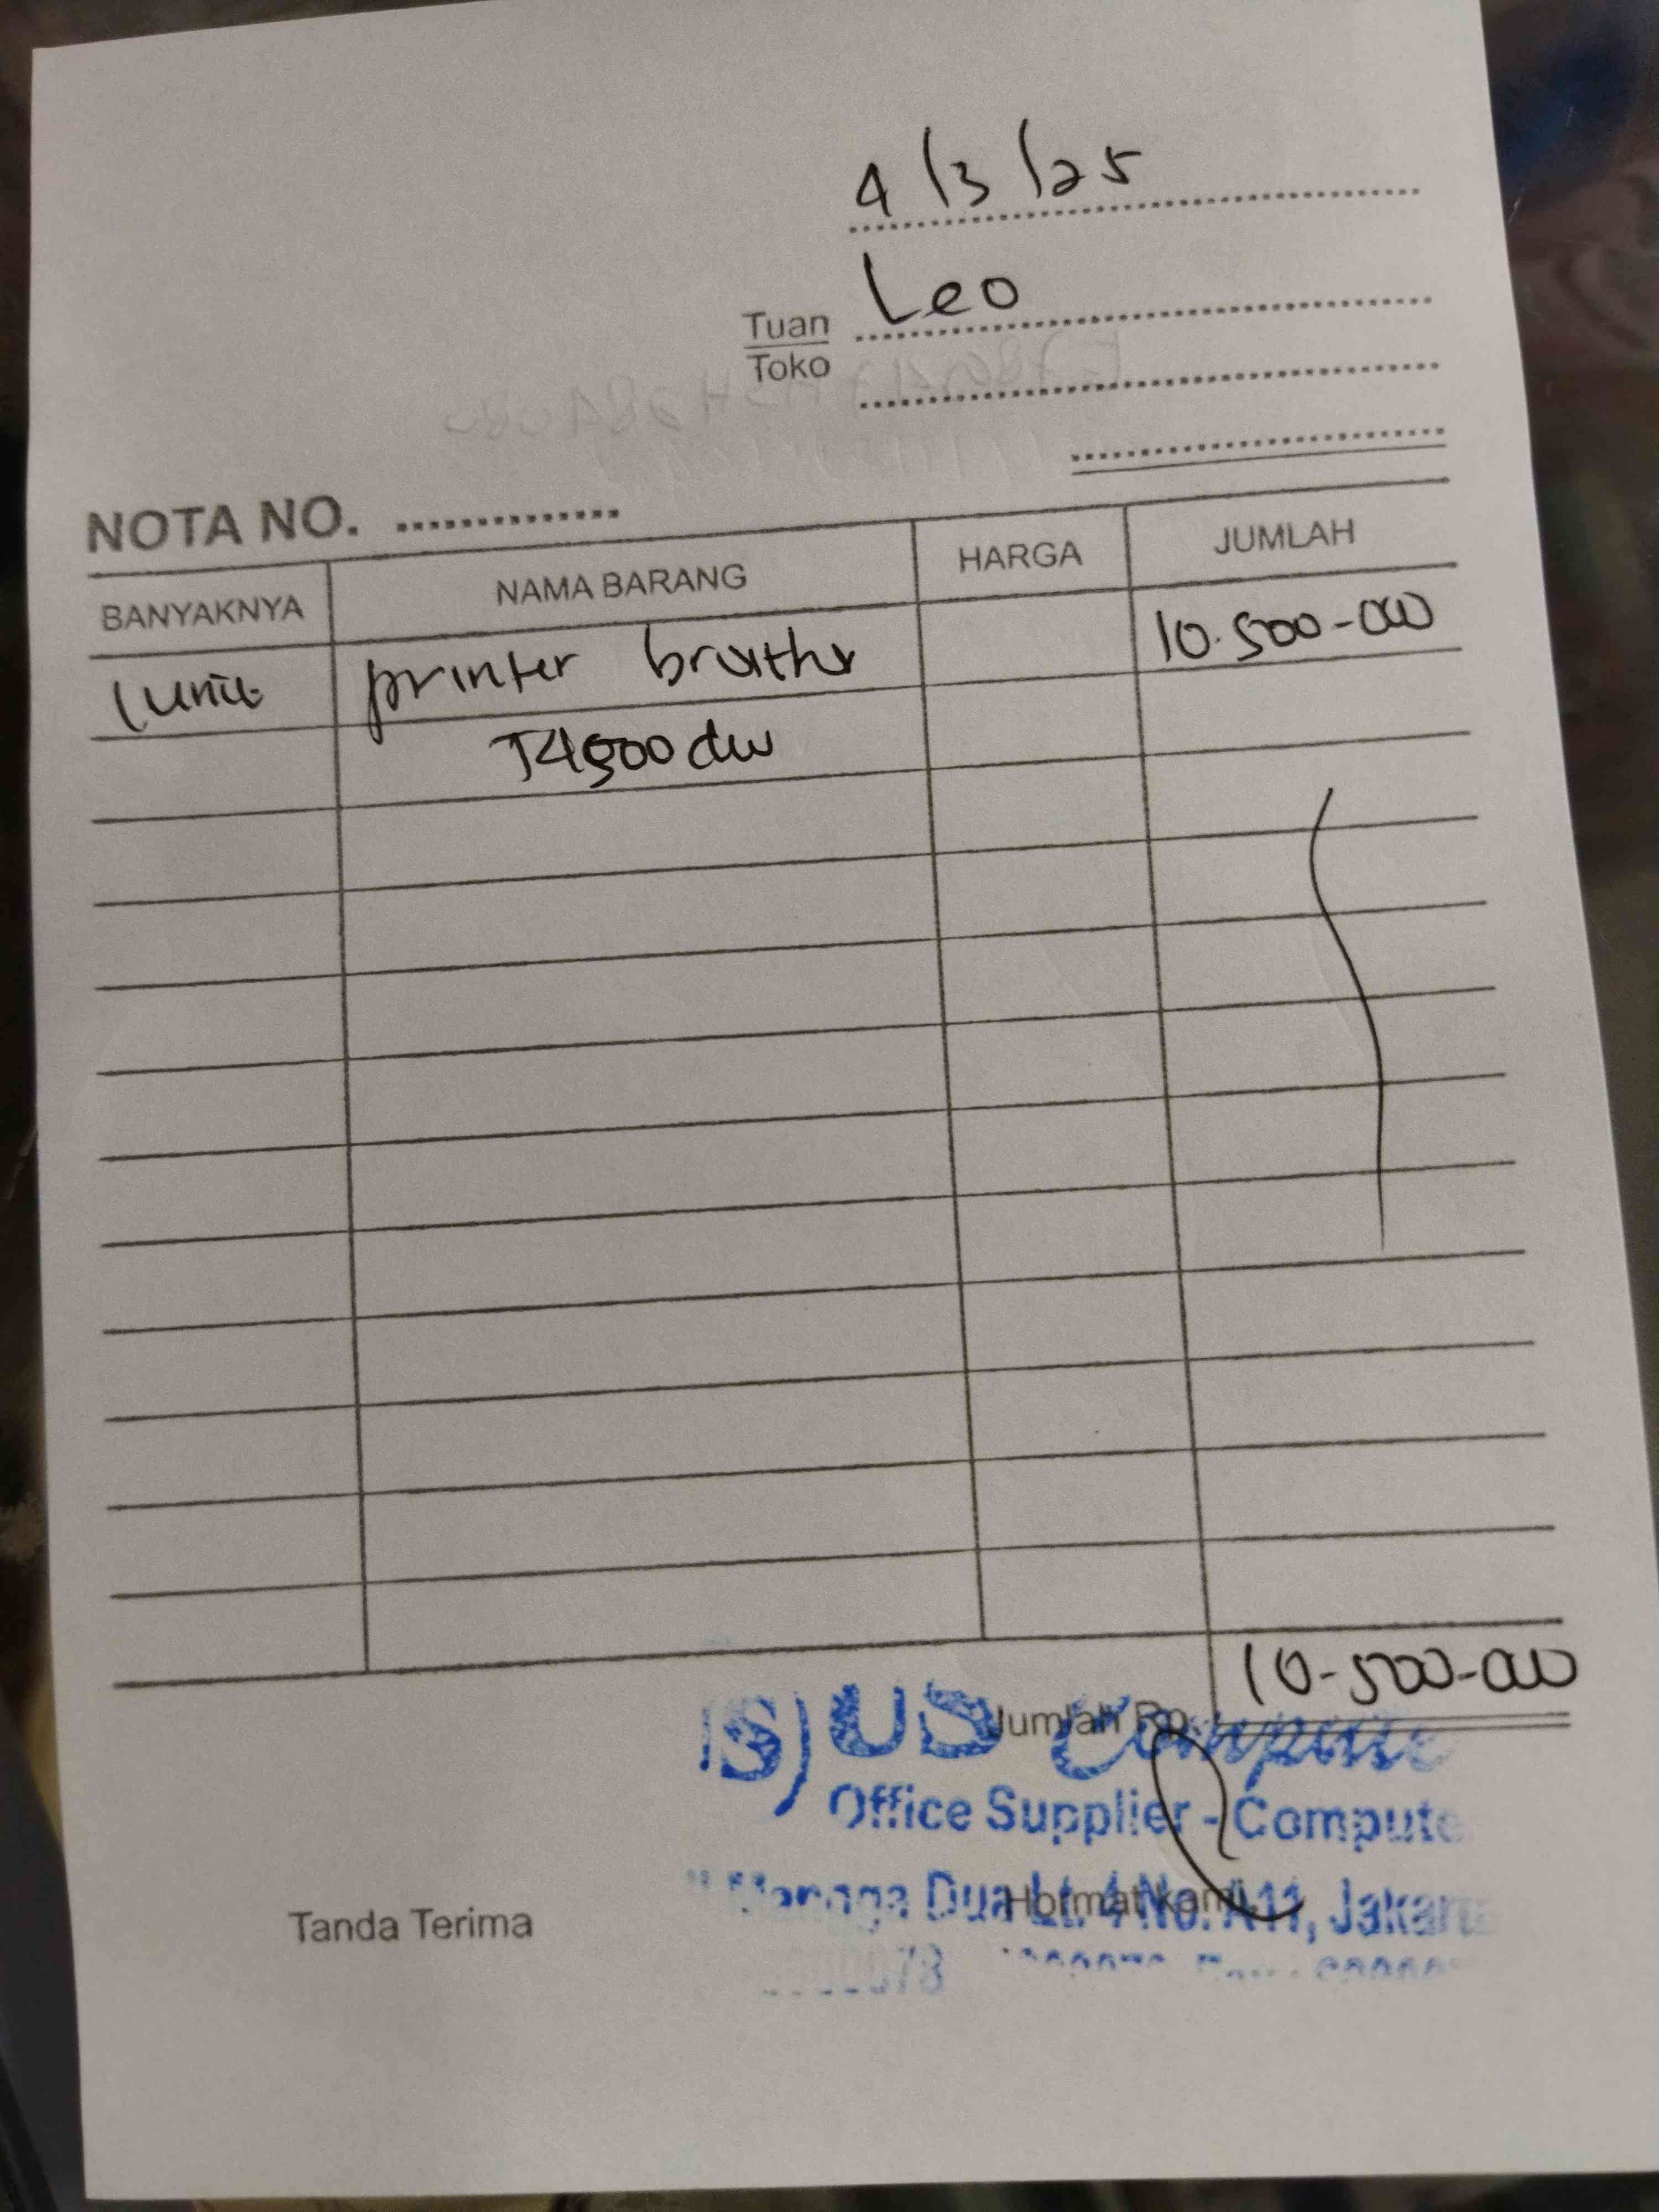 4/3/25
Tuan Leo
Toko
NOTA NO. ..............
BANYAKNYA NAMA BARANG HARGA JUMLAH
1 unit printer brother 10.500-000
T4500dw
10-500-000
Jumlah Rp.
US Compute
Office Supplier - Compute
Mangga Dua Lt. 4 No. A11, Jakarta
Tanda Terima Hormat kami,